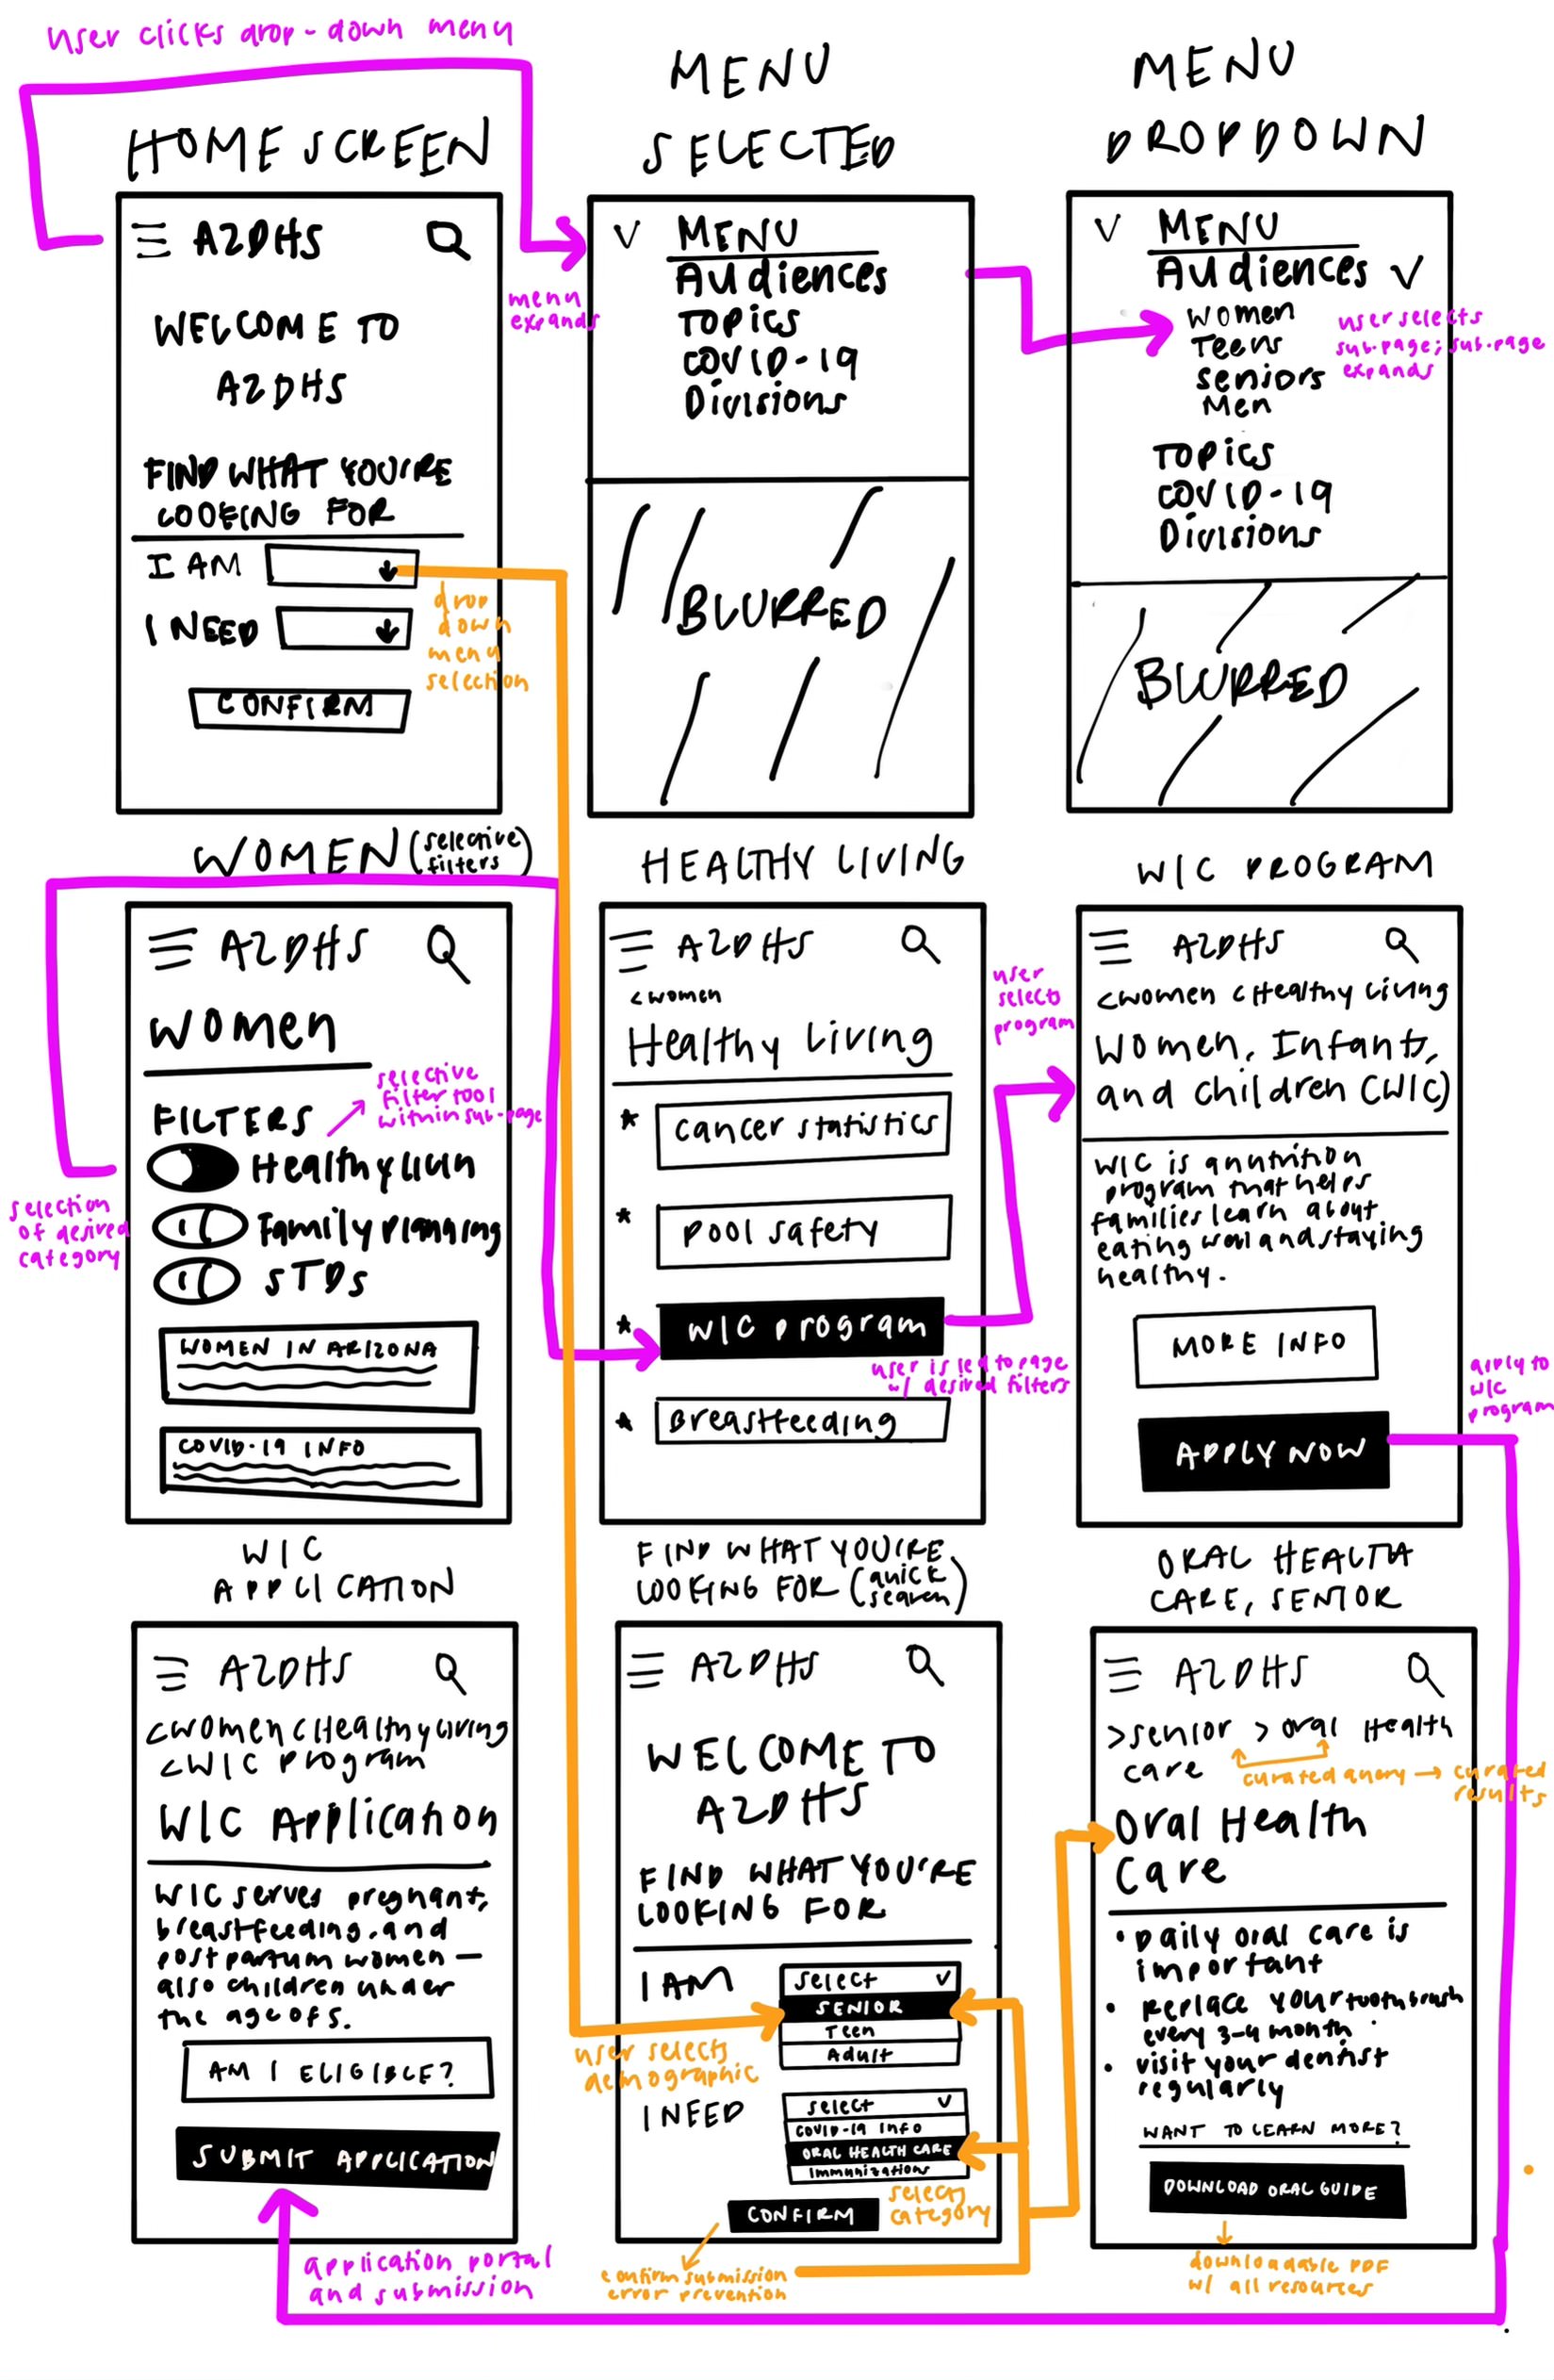 user clicks drop-down menu
HOME SCREEN
AZDHS
WELCOME TO
AZDHS
FIND WHAT YOU'RE
LOOKING FOR
I AM
I NEED
CONFIRM
drop
down
menu
selection
menu
expands
MENU
SELECTED
V MENU
Audiences
TOPICS
COVID-19
Divisions
BLURRED
MENU
DROPDOWN
V MENU
Audiences V
women
Teens
Seniors
Men
TOPICS
COVID-19
Divisions
BLURRED
user selects
sub-page; sub-page
expands
WOMEN (selective
filters)
AZDHS
women
FILTERS
selective
filter tool
within sub-page
Healthy livin
Family planning
STDs
WOMEN IN ARIZONA
COVID-19 INFO
selection
of desired
category
HEALTHY LIVING
AZDHS
<women
Healthy Living
* cancer statistics
* pool safety
* WIC program
* Breastfeeding
user is led to page
w/ desired filters
user
selects
program
WIC PROGRAM
AZDHS
<women <Healthy Living
Women, Infants,
and children (WIC)
WIC is a nutrition
program that helps
families learn about
eating well and staying
healthy.
MORE INFO
APPLY NOW
apply to
WIC
program
WIC
APPLICATION
AZDHS
<women <Healthy living
<WIC program
WIC Application
WIC serves pregnant,
breastfeeding, and
postpartum women —
also children under
the age of 5.
AM I ELIGIBLE?
SUBMIT APPLICATION
application portal
and submission
FIND WHAT YOU'RE
LOOKING FOR (quick
search)
AZDHS
WELCOME TO
AZDHS
FIND WHAT YOU'RE
LOOKING FOR
I AM
select V
SENIOR
Teen
Adult
user selects
demographic
I NEED
select V
COVID-19 INFO
ORAL HEALTH CARE
Immunizations
CONFIRM
selects
category
confirm submission
error prevention
ORAL HEALTH
CARE, SENIOR
AZDHS
>senior > oral Health
care
curated query → curated
results
Oral Health
Care
• Daily oral care is
important
• Replace your toothbrush
every 3-4 month
• visit your dentist
regularly
WANT TO LEARN MORE?
DOWNLOAD ORAL GUIDE
downloadable PDF
w/ all resources